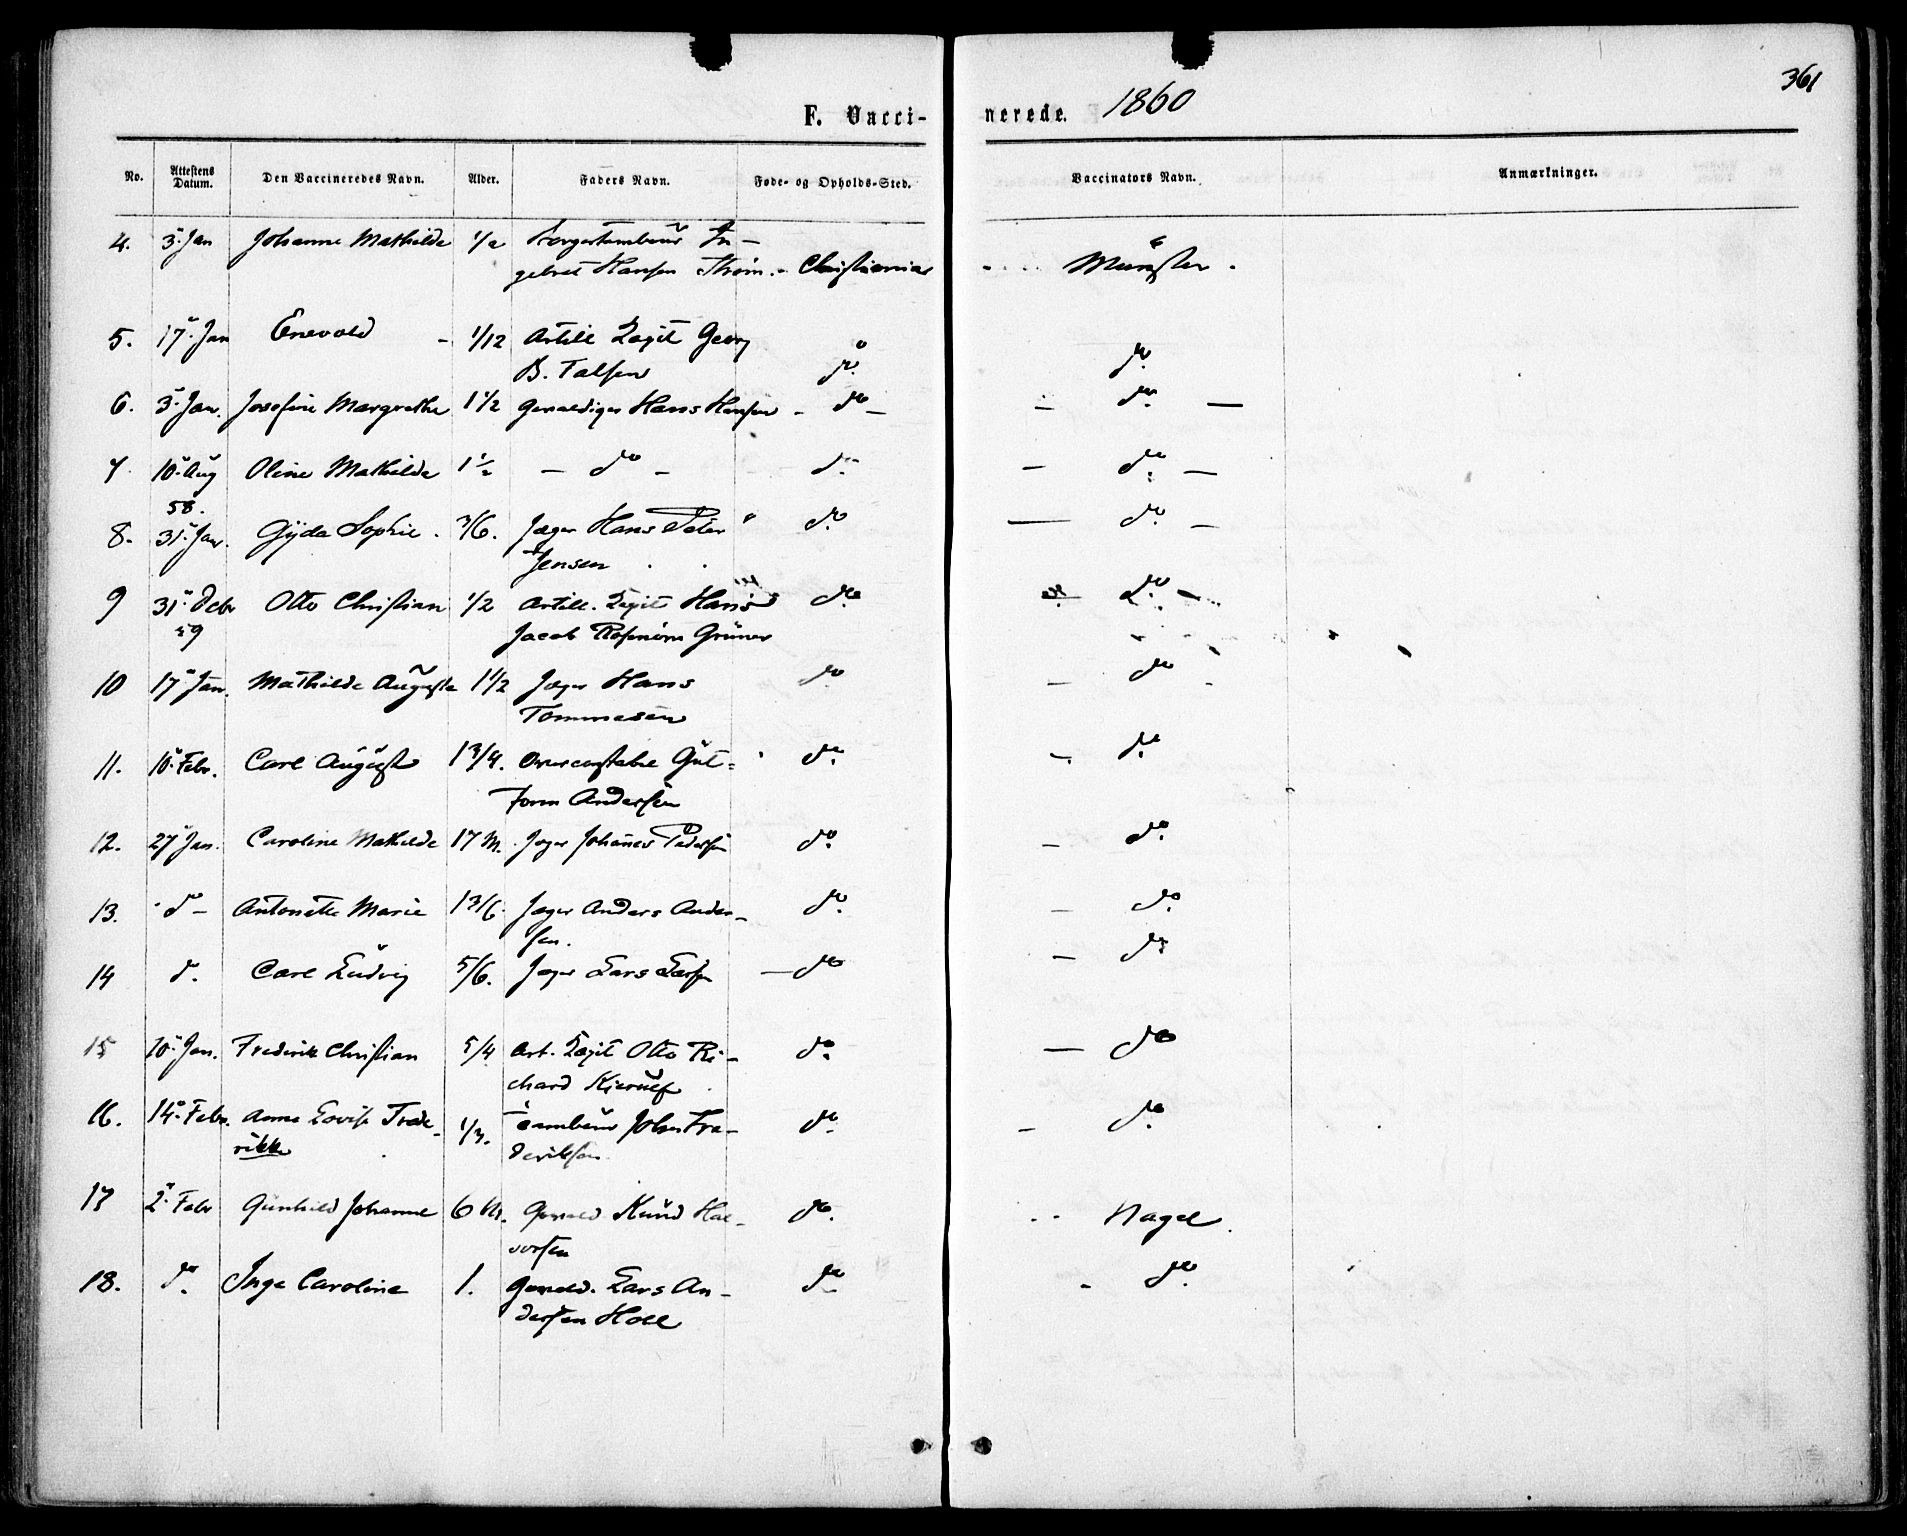 361
F. Vacci- nerede. 1860
No. Attestens Datum. Den Vaccineredes Navn. Alder. Faders Navn. Føde- og Opholds-Sted. Vaccinators Navn. Anmærkninger.
4. 3. Jan Johanne Mathilde 1/2 In-
gebret Hansen Strøm. - Christiania Münster.
5. 17. Jan Enevold - 1/12 Artill Capit Georg
B. Falsen do. do.
6. 3. Jan. Josefine Margrethe 1 1/2 Gevaldiger Hans Hansen - do - - do. -
7. 10. Aug Oline Mathilde 1 1/2 - do - do. - do. -
58.
8. 31. Jan. Gyda Sophie. 3/6. Jæger Hans Peter do. - do. -
Jensen
9 31. Debr Otto Christian 1/2 Artill. Capit Hans do. do. -
59 Jacob Rosenørn Grüner
10 17. Jan. Mathilde Auguste 1 1/2 Jæger Hans do - do
Tommesen
11. 10. Febr. Carl August 1 3/4. Overconstabel Gut= do. - do.
torm Andersen
12. 27 Jan. Caroline Mathilde 17 M. Jæger Johanes Pedersen do. - do.
13. do - Antonette Marie 1 3/6. Jæger Anders Ander- do. - do.
sen.
14 do. Carl Ludvig 5/6. Jæger Lars Larsen - do - do.
15 10. Jan. Frederik Christian 5/4 Art. Capit Otto Ri- do. - do
chard Kierulf
16. 14. Febr. Anna Lovise Frede- 1/3. Tambour Johan Fre- do. - do.
rikke deriksen
17 2. Febr Gunhild Johanne 6 M. Gevald Knud Hal- do. Nagel.
vorsen
18. do. Inga Caroline 1. Gevald. Lars An- do. - do.
dersen Holl